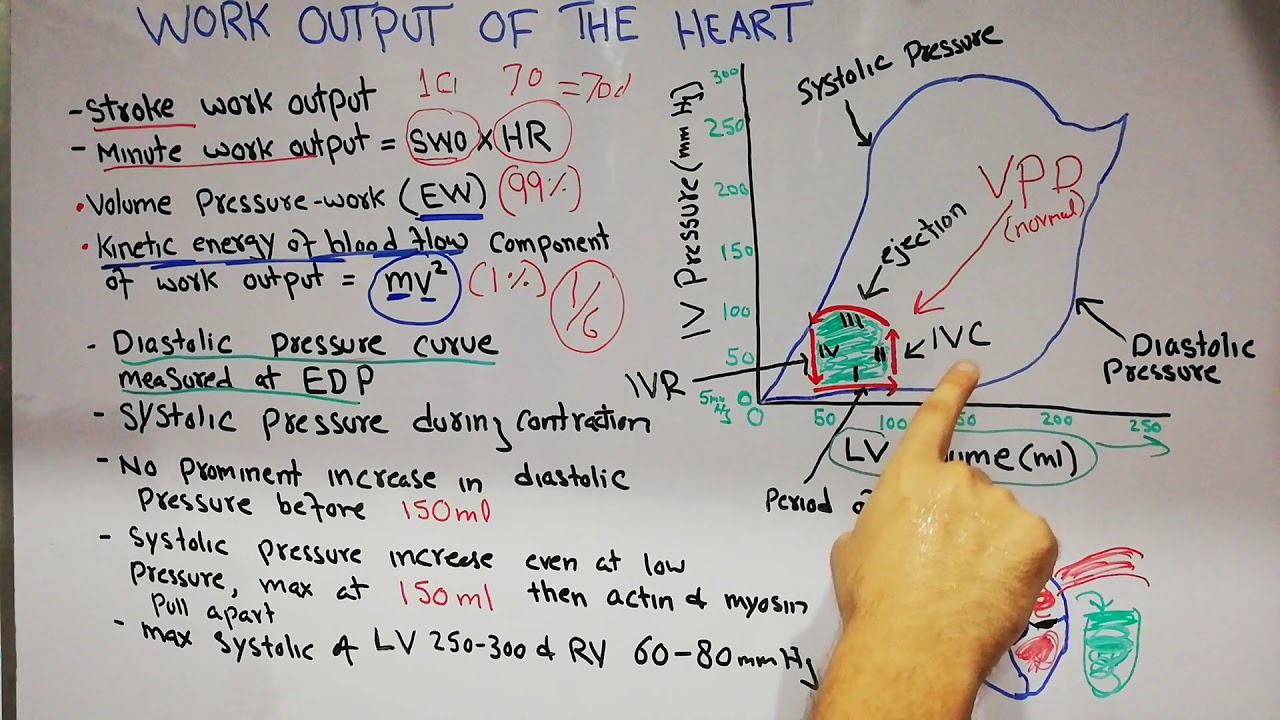 WORK OUTPUT OF THE HEART
- Stroke work output
70
- Minute work output = SWO × HR
• Volume Pressure-work (EW) (99%)
• Kinetic energy of blood flow component
of work output = mv² (1%) 1/6
- Diastolic pressure curve
measured at EDP
- Systolic pressure during contraction
- No prominent increase in diastolic
pressure before 150ml
- Systolic pressure increase even at low
pressure, max at 150ml then actin & myosin
pull apart
- max systolic of LV 250-300 & RV 60-80mmHg
IV Pressure (mm Hg)
300
250
200
150
100
50
0
5mmHg
0
50
100
200
250
LV
(ml)
Systolic Pressure
VPD
(normal)
ejection
III
IV
II
I
IVC
IVR
Diastolic
Pressure
Period